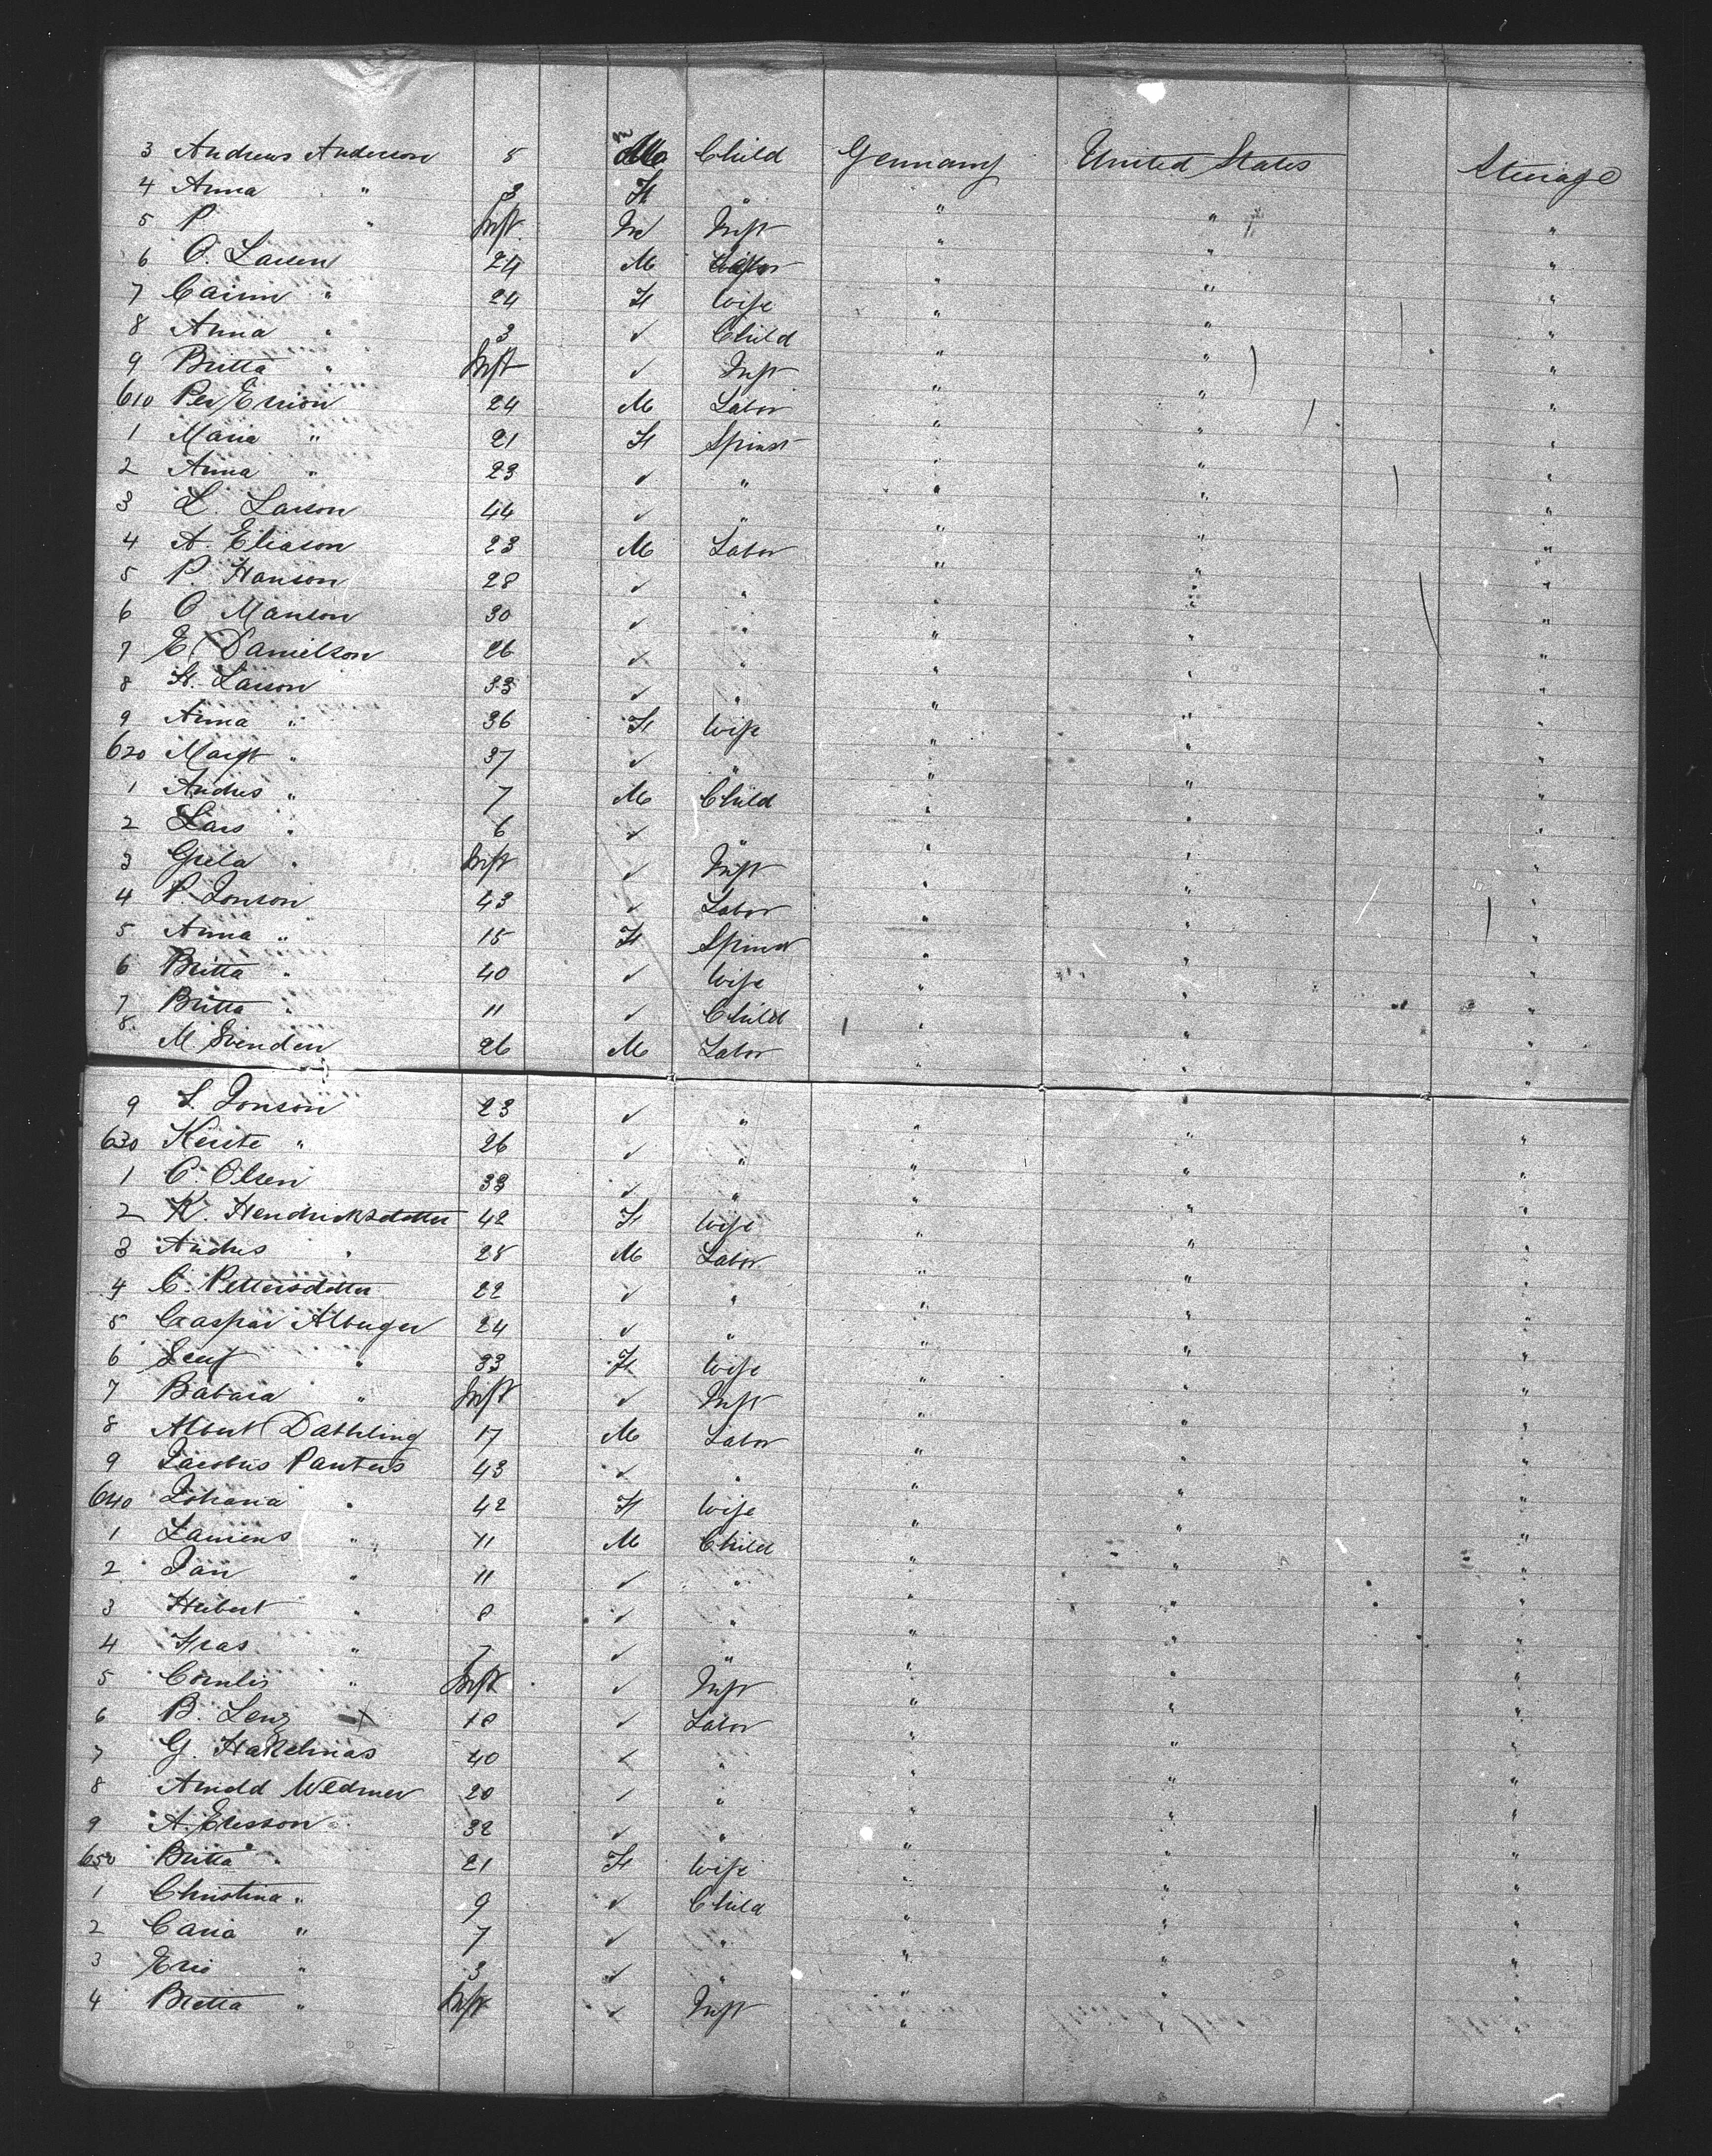 3 Andrews Anderson 5 M Child Germany United States Steerage
4 Anna " 3 F " " " "
5 P " Inft M Inft " " "
6 O. Larsen 24 M Labor " " "
7 " 24 F Wife " " "
8 Anna " 3 ✓ Child " " "
9 Britta " Inft ✓ Inft " " "
610 Per Ericson 24 M Labor " " "
1 Maria " 21 F Spinst " " "
2 Anna " 23 ✓ " " " "
3 L. Larson 44 ✓ " " " "
4 A. Eliason 23 M Labor " " "
5 P. Hanson 28 ✓ " " " "
6 O Manson 30 ✓ " " " "
7 E Danielson 26 ✓ " " " "
8 H. Larson 33 ✓ " " " "
9 Anna " 36 F Wife " " "
620 Margt " 37 ✓ " " " "
1 Andrs " 7 M Child " " "
2 Lars " 6 ✓ " " " "
3 Greta " Inft ✓ Inft " " "
4 P. Jonson 43 ✓ Labor " " "
5 Anna " 15 F Spinst " " "
6 Britta " 40 ✓ Wife " " "
7 Britta " 11 ✓ Child " " "
8 M. Svenden 26 M Labor " " "
9 S. Jonson 23 ✓ " " " "
630 Kerste " 26 ✓ " " " "
1 C. Olsen 33 ✓ " " " "
2 K. Hendricksdotter 42 F Wife " " "
3 Andrs " 28 M Labor " " "
4 C. Pettersdotter 22 ✓ " " " "
5 Caspar Alburger 24 ✓ " " " "
6 " 33 F Wife " " "
7 Babara " Inft ✓ Inft " " "
8 Albert Dathling 17 M Labor " " "
9 Jacobus Panters 43 ✓ " " " "
640 Johana " 42 F Wife " " "
1 Laurens " 11 M Child " " "
2 Jan " 11 ✓ " " " "
3 Hubert " 8 ✓ " " " "
4 Fras " 7 ✓ " " " "
5 Cornlis " Inft ✓ Inft " " "
6 B. Lenz X 18 ✓ Labor " " "
7 G. Hakelmas 40 ✓ " " " "
8 Arnold Wedmer 20 ✓ " " " "
9 A. Ericsson 32 ✓ " " " "
650 Britta " 21 F Wife " " "
1 Christina " 9 ✓ Child " " "
2 Caria " 7 ✓ " " " "
3 Eric " 3 ✓ " " " "
4 Bretta " Inft ✓ Inft " " "